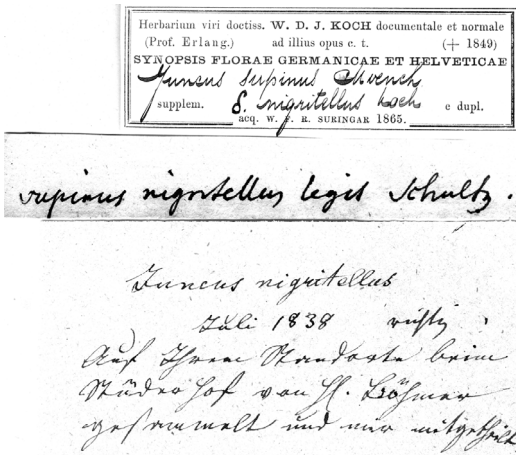 Herbarium viri doctiss. W. D. J. KOCH documentale et normale
(Prof. Erlang.) ad illius opus c. t. (+ 1849)
SYNOPSIS FLORAE GERMANICAE ET HELVETICAE
Juncus supinus Moench
supplem. δ. nigritellus Koch e dupl.
acq. W. F. R. SURINGAR 1865.
supinus nigritellus legit Schultz.
Juncus nigritellus
Juli 1838 richtig
Auf Ihrem Standorte beim
Stüderhof von H. Böhmer
gesammelt und mir mitgetheilt